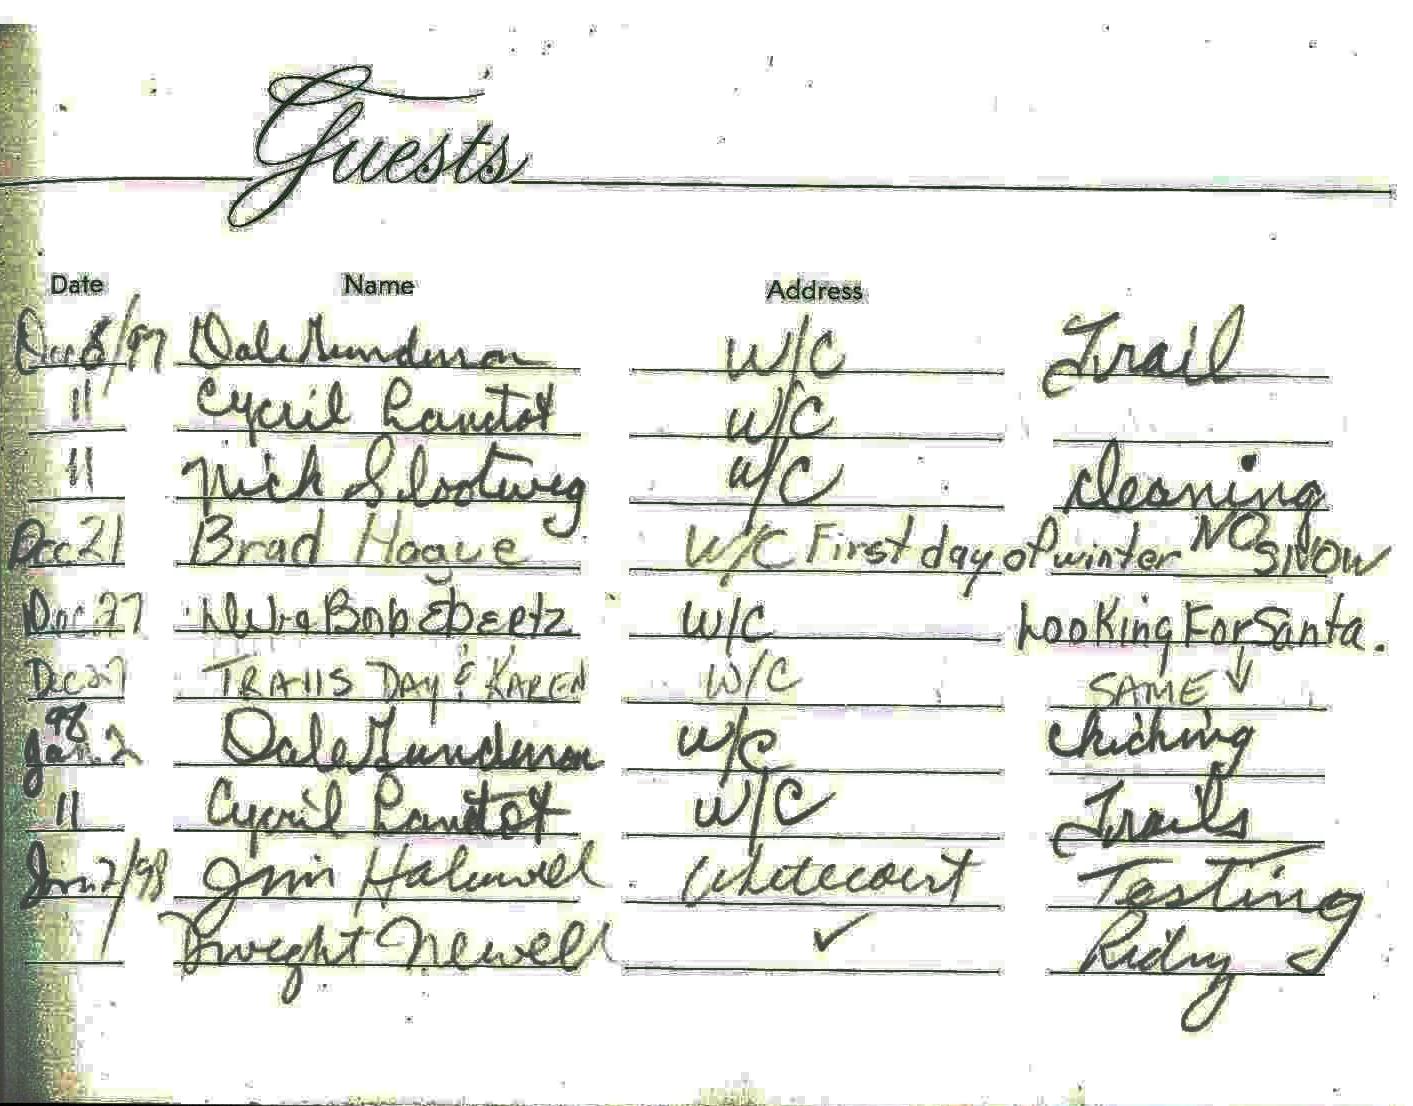 Guests
Date Name Address
Dec 8/97 Dale Gunderson W/C Trail
11 Cyril Lanctot W/C
11 Nick Slootweg W/C cleaning
Dec 21 Brad Hogue W/C First day of winter NO SNOW
Dec 27 Bob Ebertz W/C Looking For Santa.
Dec 27 TRAVIS DAY & KAREN W/C SAME ↓
98 Jan. 2 Dale Gunderson W/C checking
11 Cyril Lanctot W/C Trails
Jan 2/98 Jim Whitecourt Testing
Dwight Newell ✓ Riding